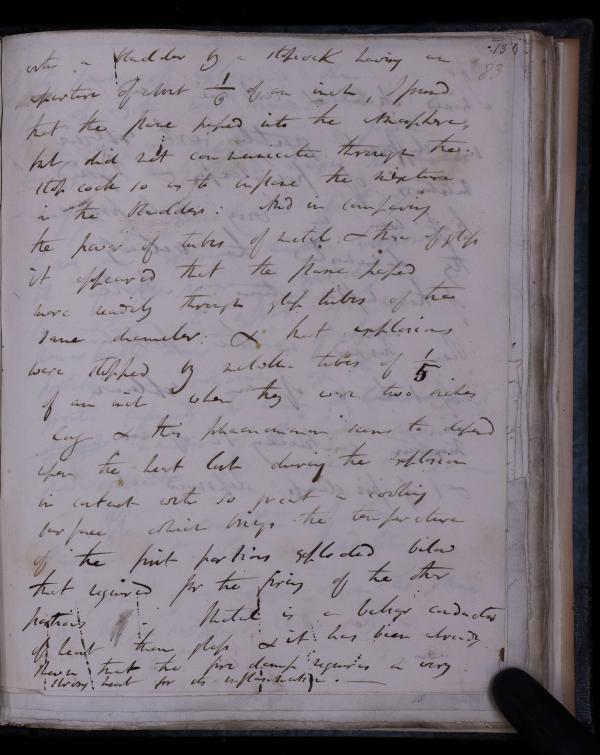 139
83
with a bladder by a stopcock having an
aperture of about 1/6 of an inch, I found
that the flame passed into the atmosphere,
but did not communicate through the
stop cock so as to inflame the mixture
in the bladder: And in comparing
the power of tubes of metal & those of glass
it appeared that the flame passed
more readily through glass tubes of the
same diameter: & that explosions
were stopped by metallic tubes of 1/5
of an inch when they were two inches
long & this phaenomenon seems to depend
upon the heat lost during the explosion
in contact with so great a cooling
surface which brings the temperature
of the first portions exploded below
that required for the firing of the other
portions. Metal is a better conductor
of heat than glass & it has been already
shewn that the fire damp requires a very
strong heat for its inflammation.